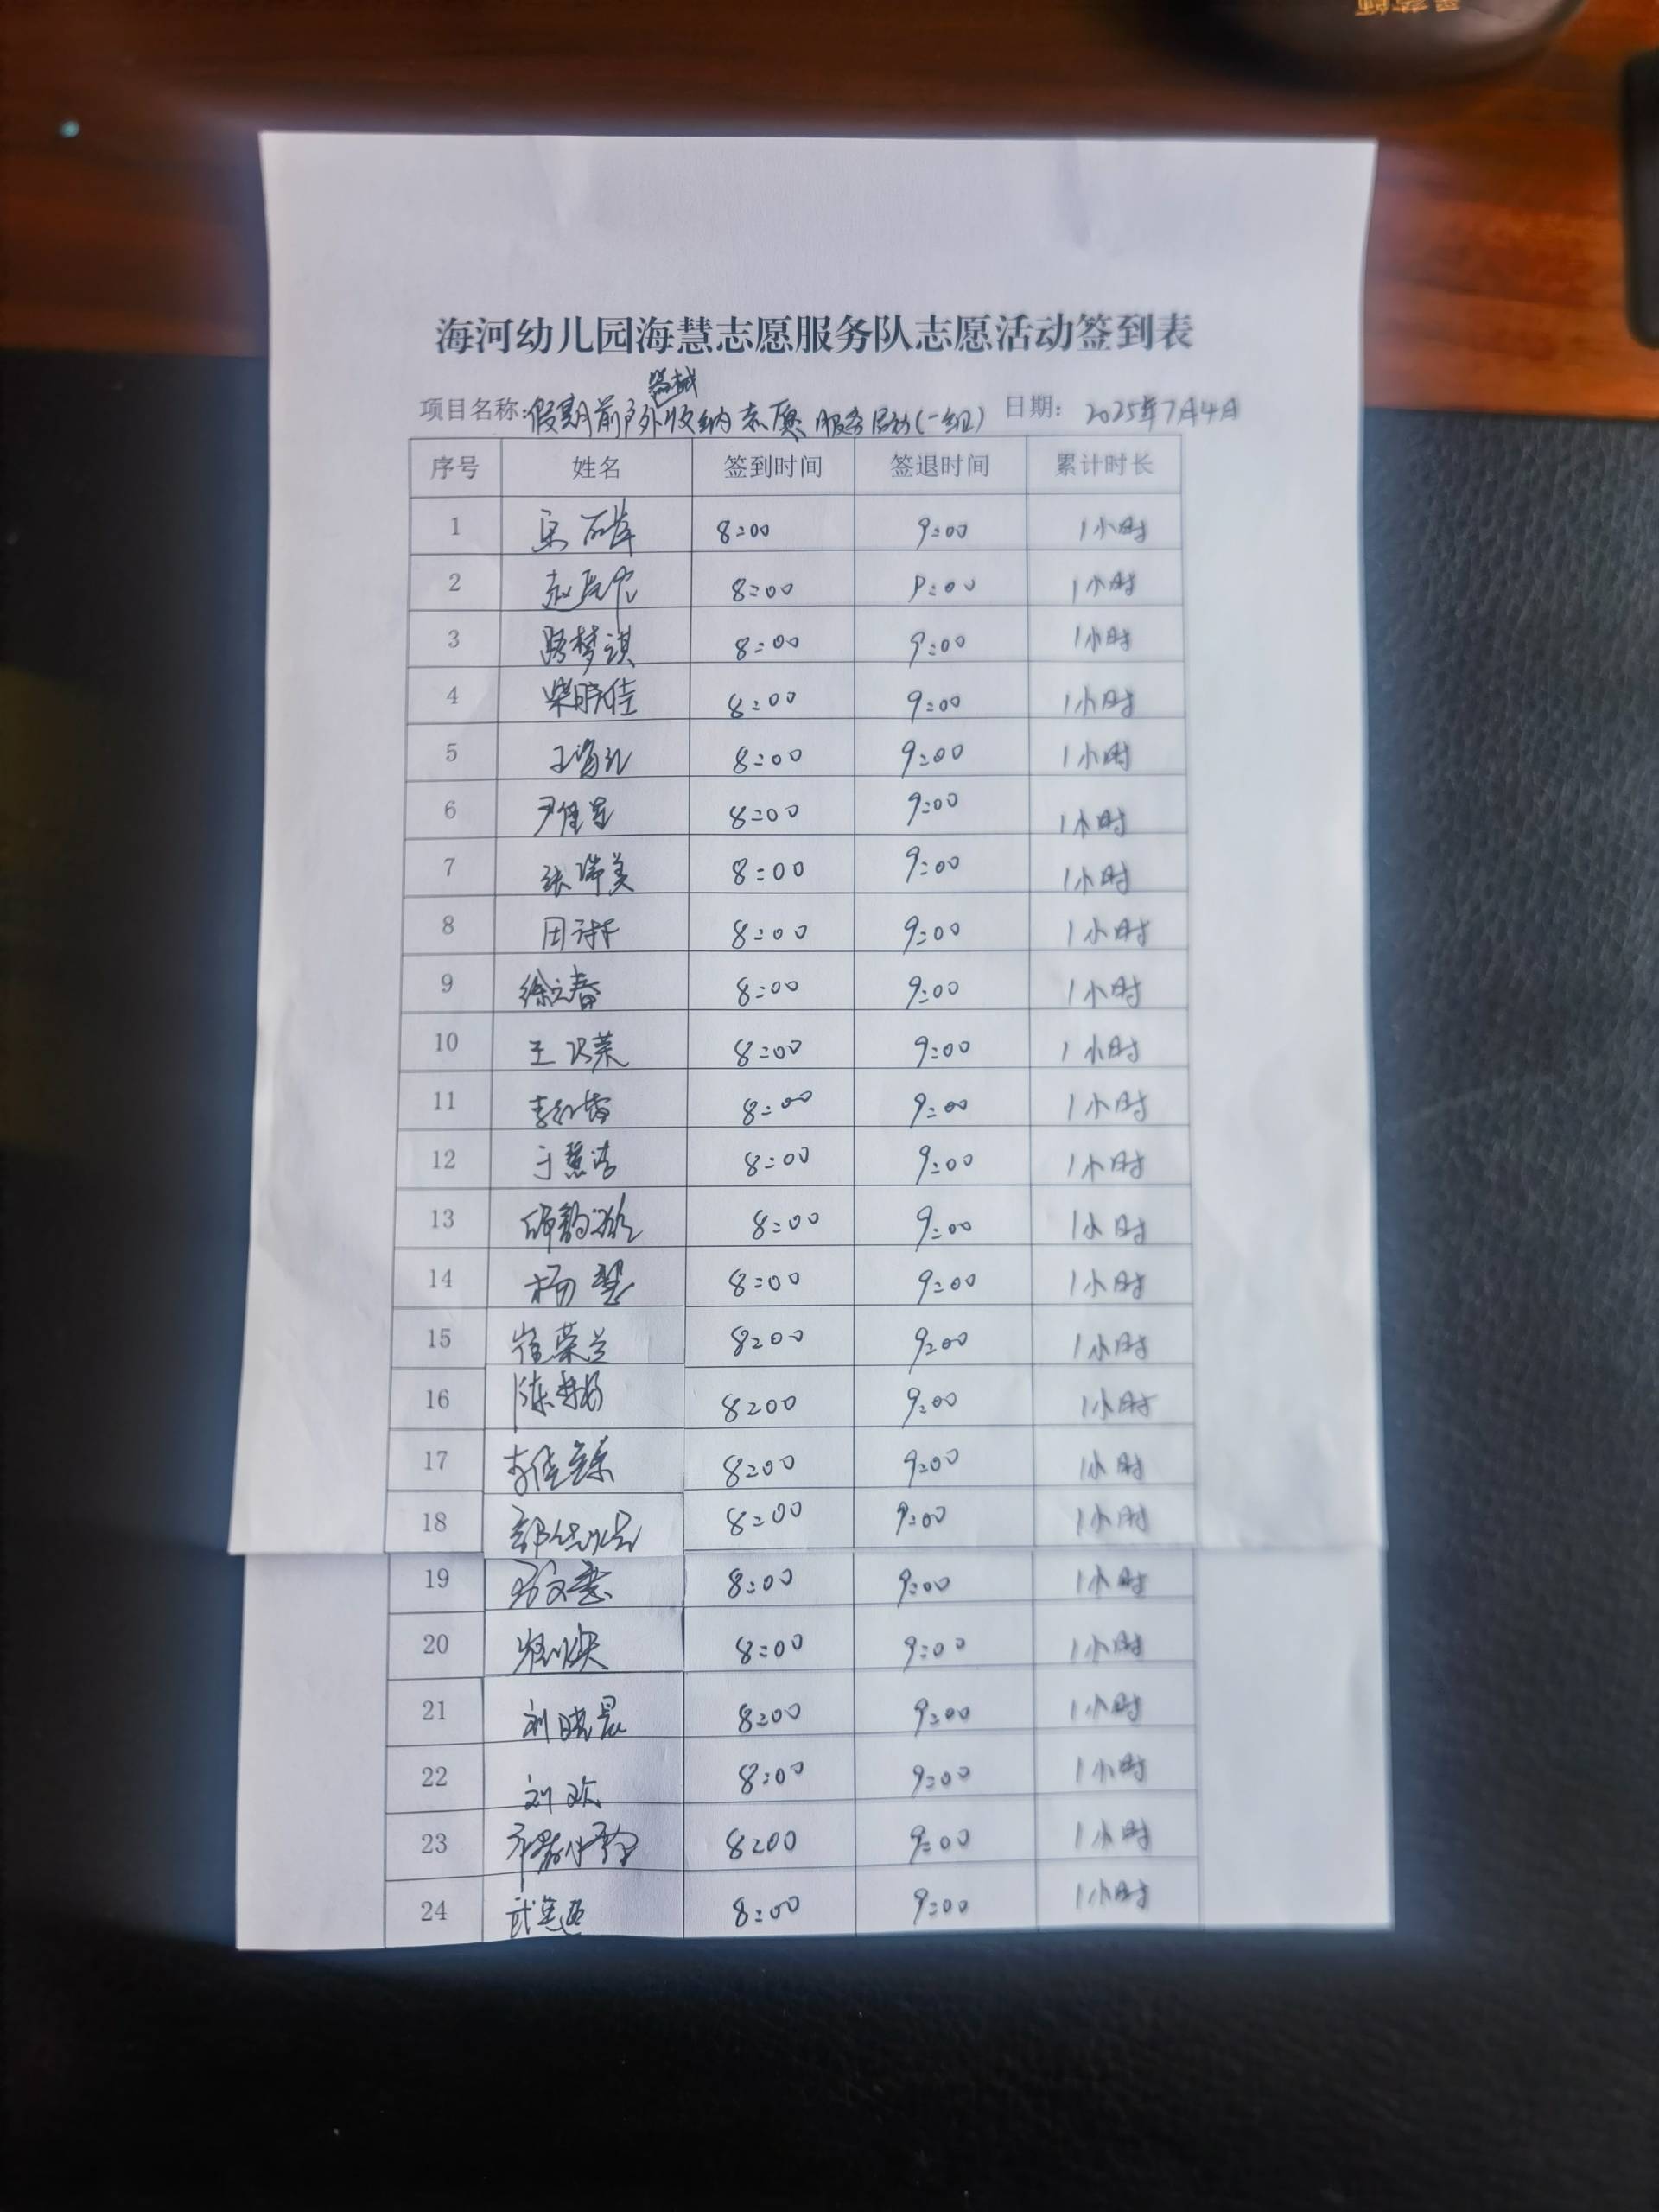 海河幼儿园海慧志愿服务队志愿活动签到表
器械
项目名称:假期前户外收纳志愿服务活动(一组) 日期: 2025年7月4日
序号 姓名 签到时间 签退时间 累计时长
1 8:00 9:00 1小时
2 8:00 9:00 1小时
3 骆梦祺 8:00 9:00 1小时
4 柴晓佳 8:00 9:00 1小时
5 8:00 9:00 1小时
6 8:00 9:00 1小时
7 张瑞美 8:00 9:00 1小时
8 8:00 9:00 1小时
9 徐立春 8:00 9:00 1小时
10 8:00 9:00 1小时
11 8:00 9:00 1小时
12 于慧洁 8:00 9:00 1小时
13 8:00 9:00 1小时
14 8:00 9:00 1小时
15 崔荣兰 8:00 9:00 1小时
16 8:00 9:00 1小时
17 8:00 9:00 1小时
18 8:00 9:00 1小时
19 8:00 9:00 1小时
20 8:00 9:00 1小时
21 刘晓晨 8:00 9:00 1小时
22 刘欢 8:00 9:00 1小时
23 8:00 9:00 1小时
24 8:00 9:00 1小时